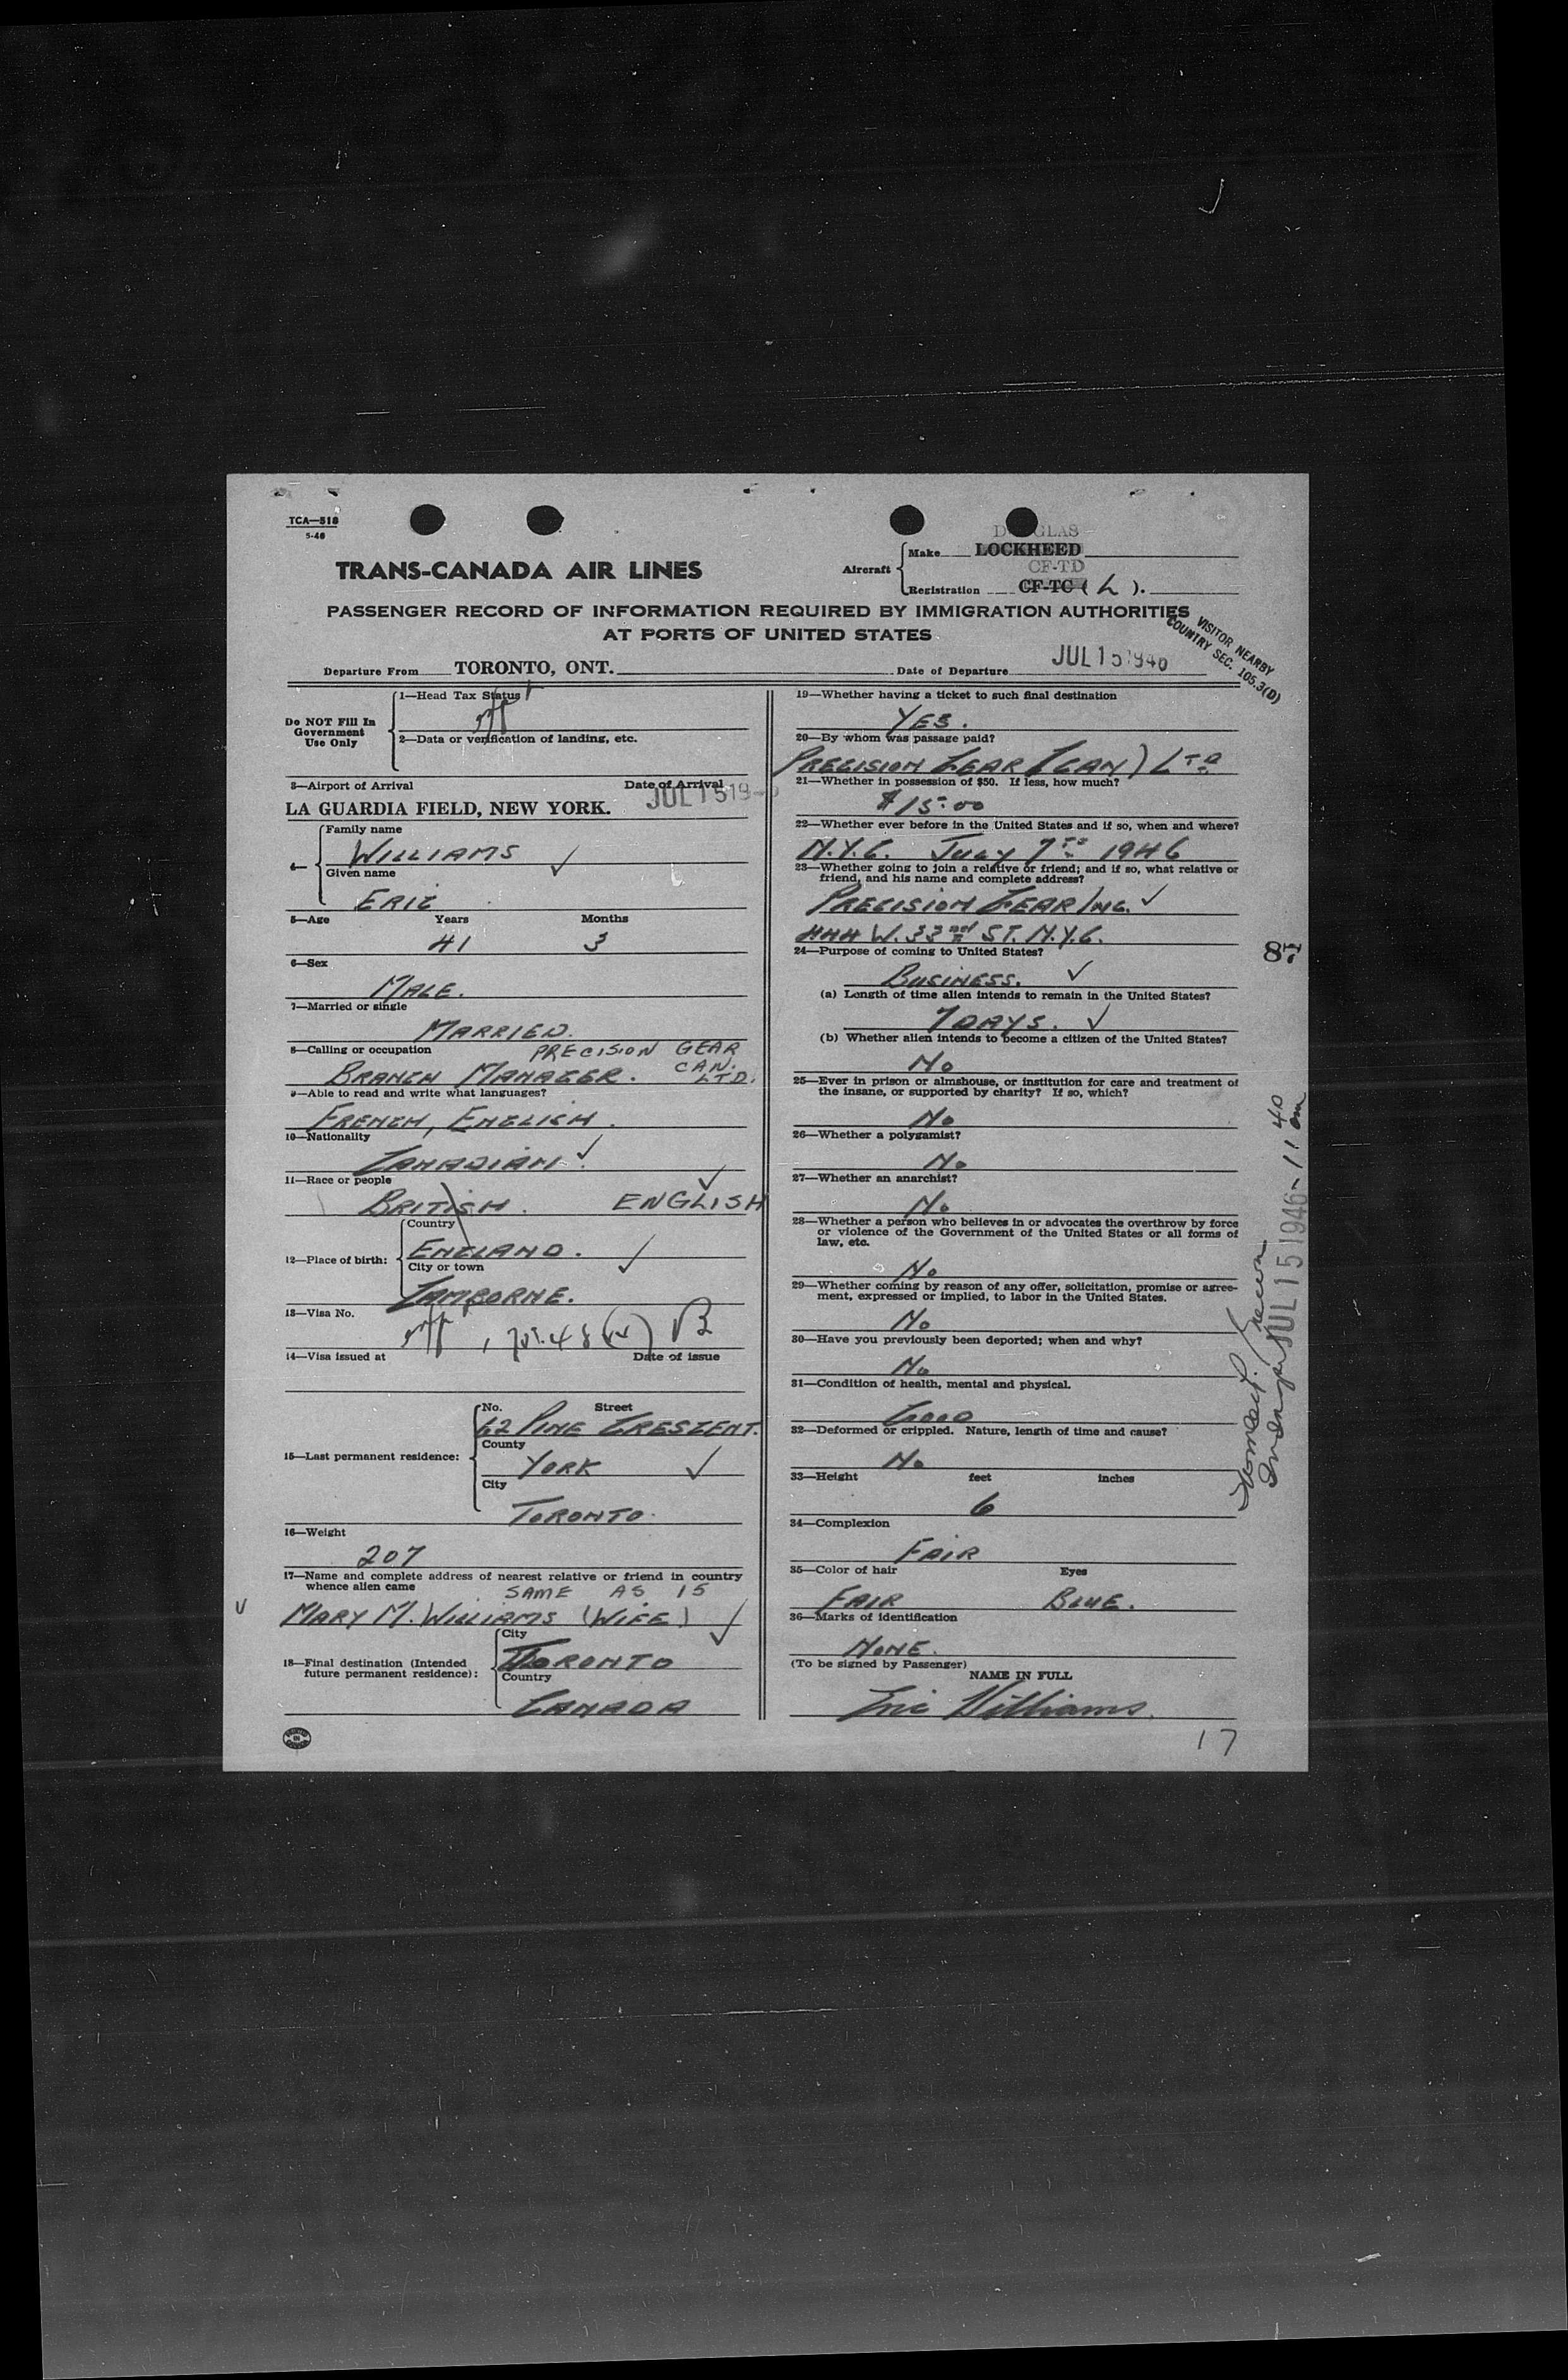 TCA—518
5-46
DOUGLAS
Aircraft
Make LOCKHEED
CF-TD
Registration CF-TC ( L ).
TRANS-CANADA AIR LINES
PASSENGER RECORD OF INFORMATION REQUIRED BY IMMIGRATION AUTHORITIES
AT PORTS OF UNITED STATES
VISITOR NEARBY
COUNTRY SEC. 105.3(D)
Departure From TORONTO, ONT. Date of Departure JUL 15 1946
Do NOT Fill In
Government
Use Only
1—Head Tax Status
2—Data or verification of landing, etc.
3—Airport of Arrival Date of Arrival
LA GUARDIA FIELD, NEW YORK. JUL 15 19
4—
Family name
WILLIAMS
Given name
ERIC
5—Age Years Months
41 3
6—Sex
MALE.
7—Married or single
MARRIED.
8—Calling or occupation PRECISION GEAR
BRANCH MANAGER. CAN. LTD.
9—Able to read and write what languages?
FRENCH, ENGLISH.
10—Nationality
CANADIAN.
11—Race or people
BRITISH. ENGLISH
12—Place of birth:
Country
ENGLAND.
City or town
CAMBORNE.
13—Visa No.
14—Visa issued at Date of issue
15—Last permanent residence:
No. Street
62 PINE CRESCENT.
County
YORK
City
TORONTO.
16—Weight
207
17—Name and complete address of nearest relative or friend in country
whence alien came
SAME AS 15
MARY M. WILLIAMS (WIFE)
18—Final destination (Intended
future permanent residence):
City
TORONTO
Country
CANADA
19—Whether having a ticket to such final destination
YES.
20—By whom was passage paid?
PRECISION GEAR (CAN) LTD
21—Whether in possession of $50. If less, how much?
$15.00
22—Whether ever before in the United States and if so, when and where?
N.Y.C. JULY 7TH 1946
23—Whether going to join a relative or friend; and if so, what relative or
friend, and his name and complete address?
PRECISION GEAR INC.
444 W. 33nd ST. N.Y.C.
24—Purpose of coming to United States?
BUSINESS.
(a) Length of time alien intends to remain in the United States?
7 DAYS.
(b) Whether alien intends to become a citizen of the United States?
NO
25—Ever in prison or almshouse, or institution for care and treatment of
the insane, or supported by charity? If so, which?
NO
26—Whether a polygamist?
NO
27—Whether an anarchist?
NO
28—Whether a person who believes in or advocates the overthrow by force
or violence of the Government of the United States or all forms of
law, etc.
NO
29—Whether coming by reason of any offer, solicitation, promise or agree-
ment, expressed or implied, to labor in the United States.
NO
30—Have you previously been deported; when and why?
NO
31—Condition of health, mental and physical.
GOOD
32—Deformed or crippled. Nature, length of time and cause?
NO
33—Height feet inches
6
34—Complexion
FAIR
35—Color of hair Eyes
FAIR BLUE.
36—Marks of identification
NONE.
(To be signed by Passenger)
NAME IN FULL
Eric Williams.
87
JUL 15 1946 - 11 40 am
17